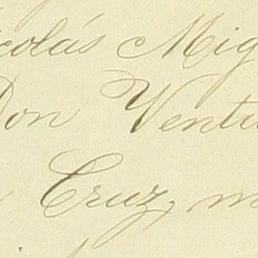 colás Mig
Don Ventu
Cruz, m